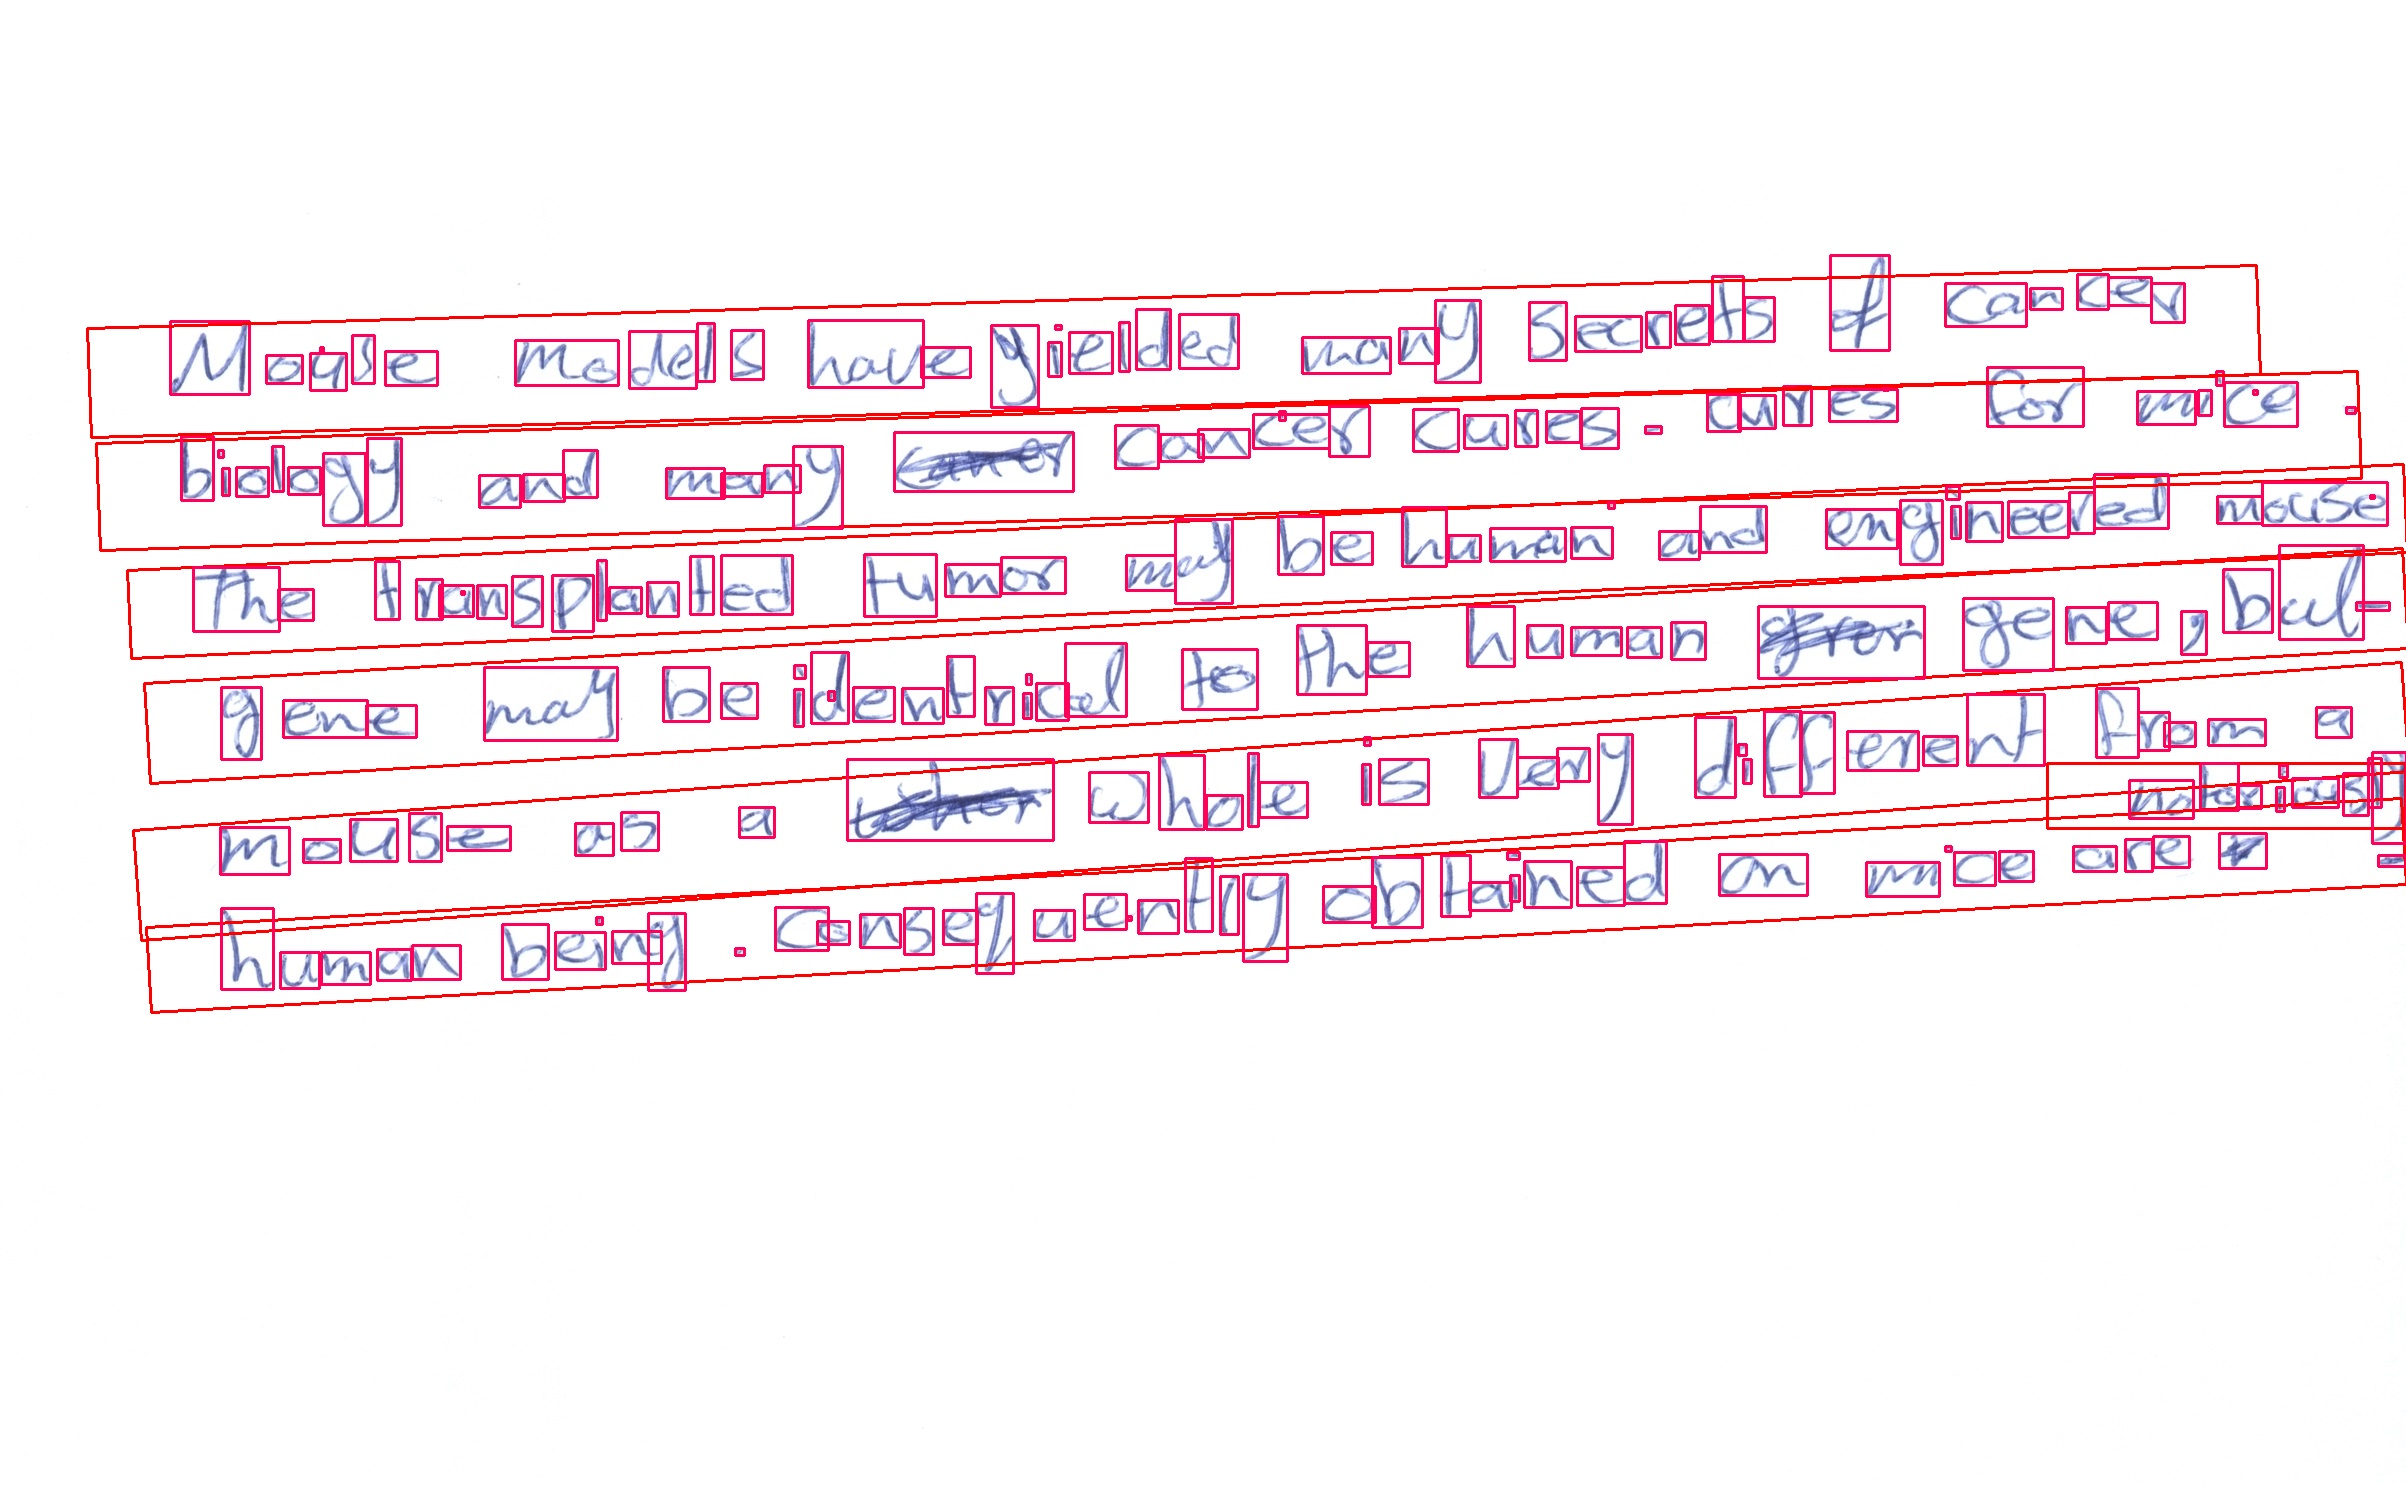 Mouse models have yielded many secrets of cancer
biology and many cancer cures - cures for mice -
The transplanted tumor may be human and engineered mouse
gene may be identrical to the human gene, but -
mouse as a whole is very different from a
notoriously
human being . Consequently obtained on mice are -